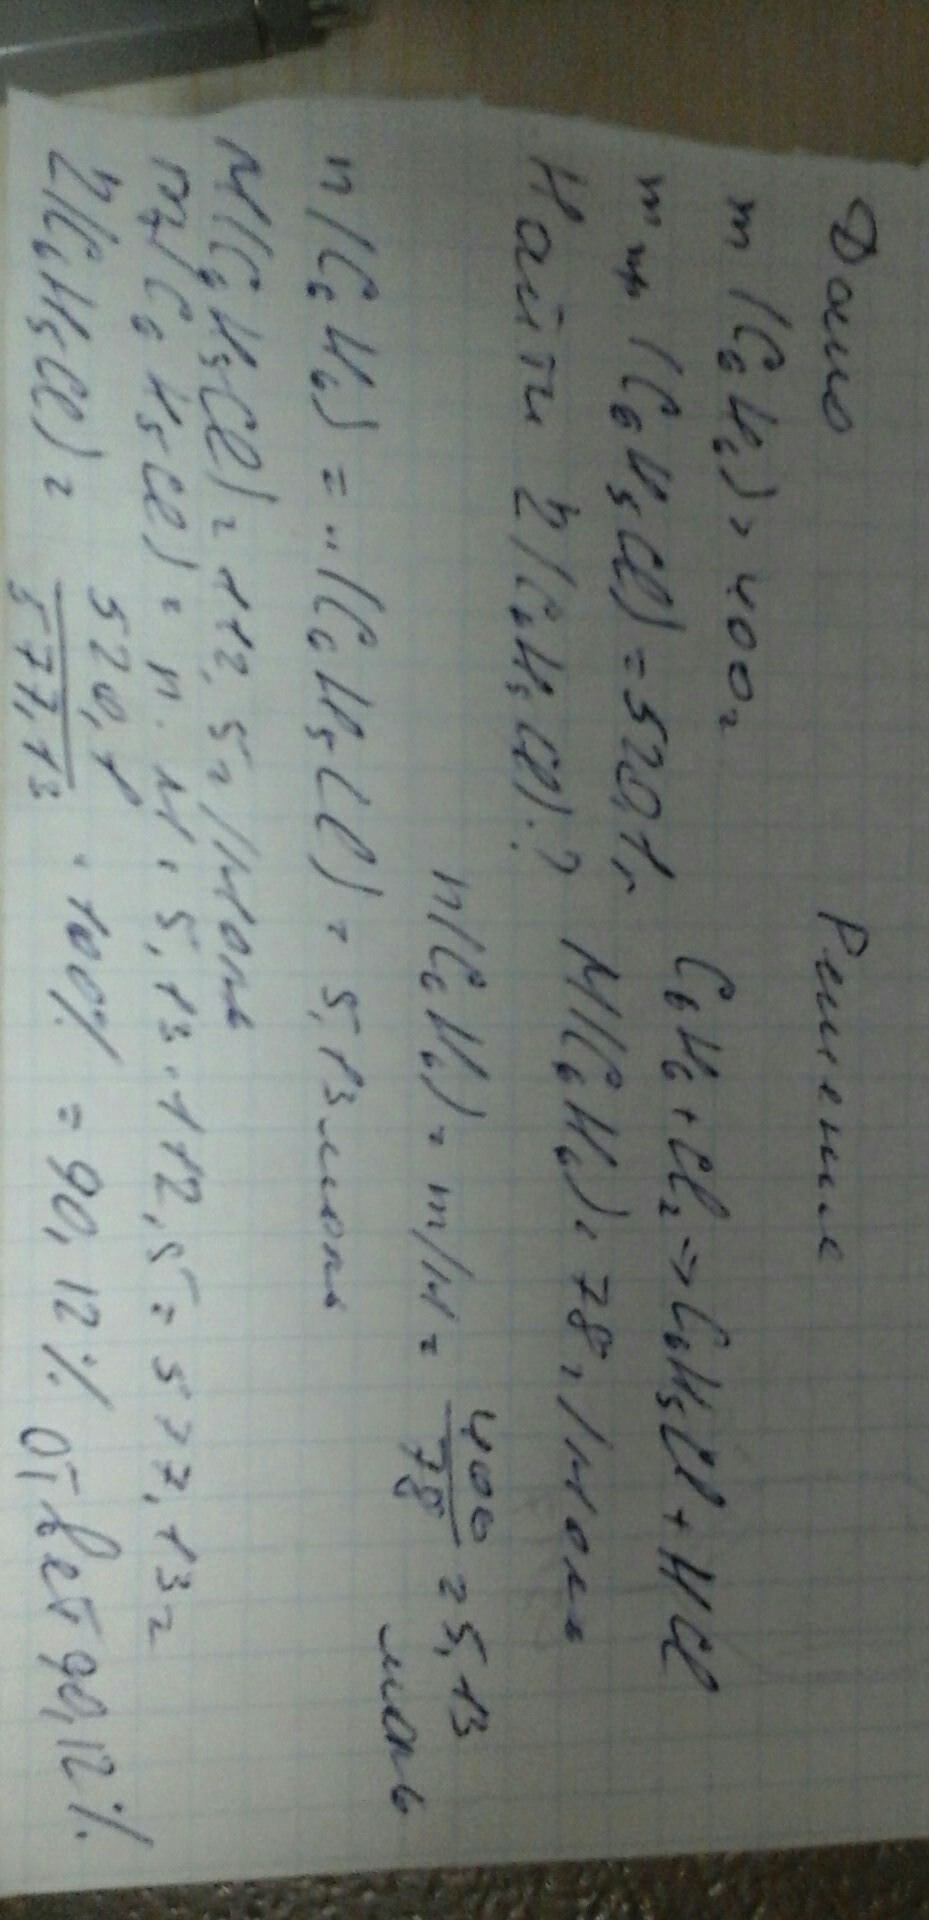 Дано Решение
m (C₆H₆) = 400г
m пр (C₆H₅Cl) = 520,1г C₆H₆ + Cl₂ → C₆H₅Cl + HCl
Найти η(C₆H₅Cl)? M(C₆H₆) = 78г/моль
n(C₆H₆) = m/M = 400/78 = 5,13 моль
n(C₆H₆) = ..(C₆H₅Cl) = 5,13 моль
M(C₆H₅Cl) = 112,5г/моль
m(C₆H₅Cl) = n·M = 5,13·112,5 = 577,13г
η(C₆H₅Cl) = 520,1/577,13 · 100% = 90,12% Ответ 90,12%